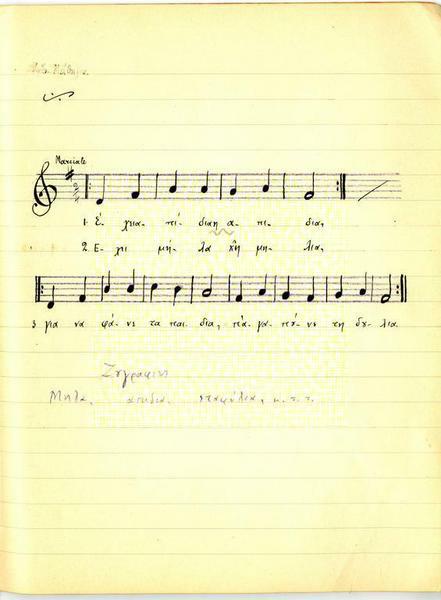 Marciale
1. Έ- χει α- πί- δια η α- πι- δια,
2. Ε- χει μή- λα κ' η μη- λια,
3 για να φά- νε τα παι- δια, π' α- γα- πού- νε τη δου- λια.
Ζωγραφική
Μηλα, απιδια, σταφύλια, κ.τ.τ.